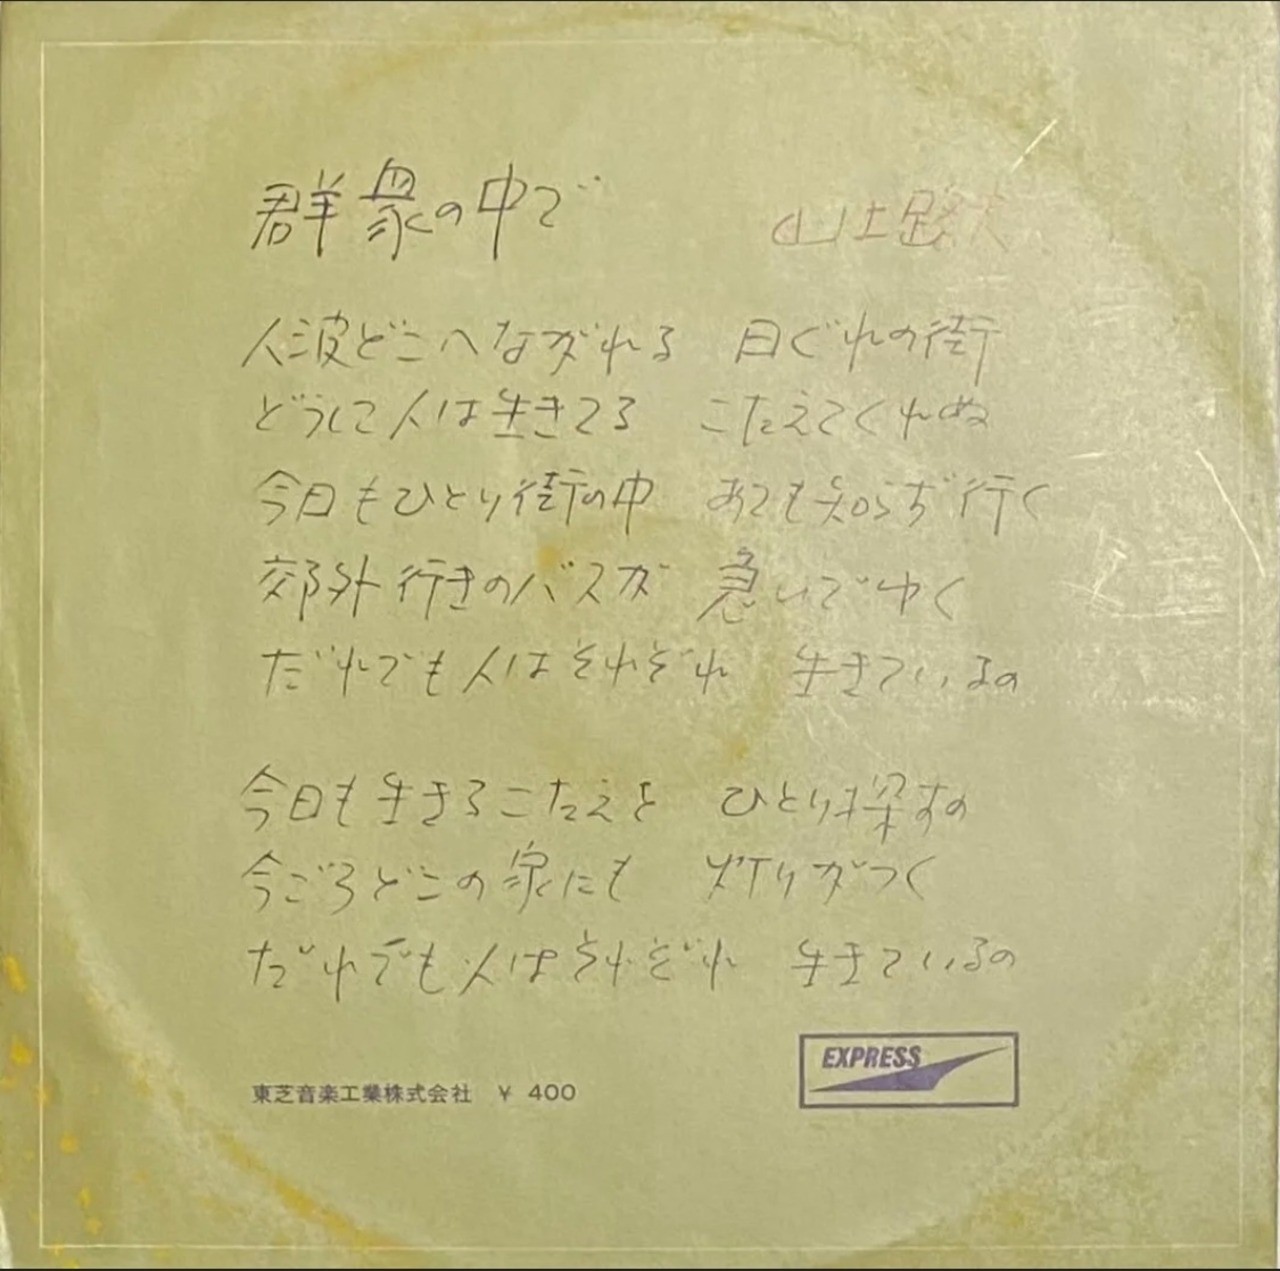 群衆の中で　山上路夫
人波どこへながれる　日ぐれの街
どうして人は生きてる　こたえてくれぬ
今日もひとり街の中　あても知らず行く
郊外行きのバスが　急いでゆく
だれでも人はそれぞれ　生きているの
今日も生きるこたえを　ひとり探すの
今ごろどこの家にも　灯りがつく
だれでも人はそれぞれ　生きているの
EXPRESS
東芝音楽工業株式会社　￥ 400